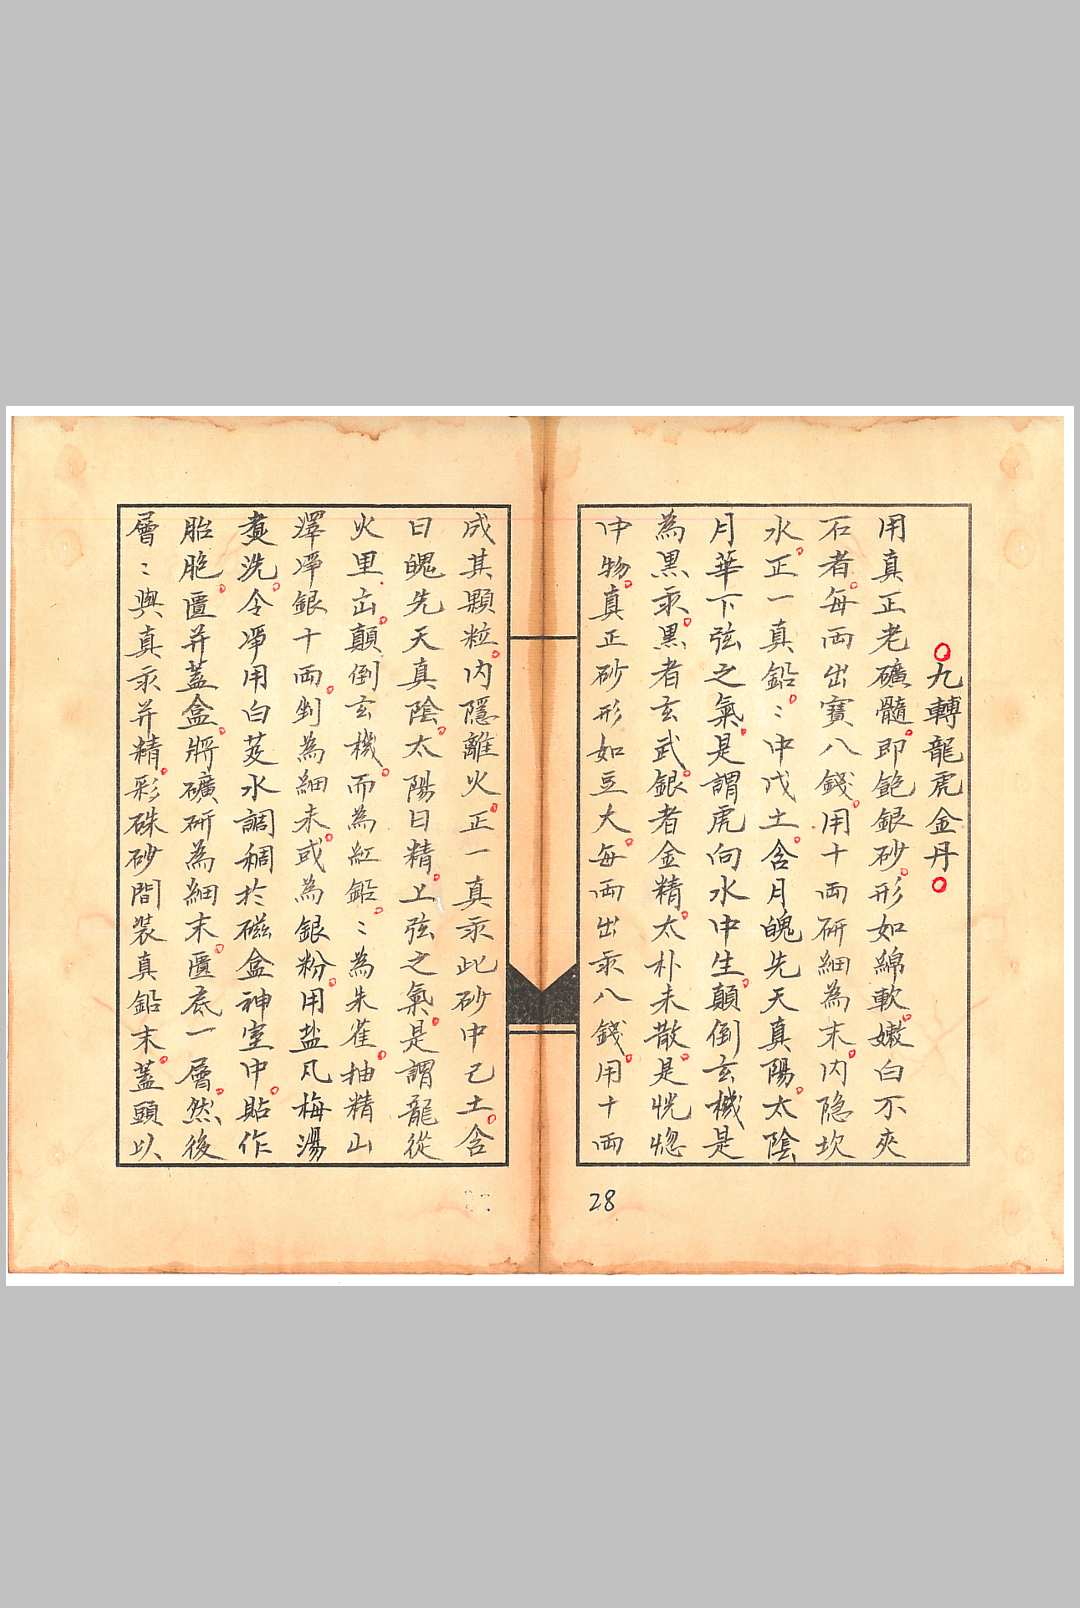 ○九轉龍虎金丹○
用真正老礦髓。即鉋銀砂。形如綿軟。嫩白不夾
石者。每両出寶八錢。用十両研細為末。内隐坎
水。正一真鉛。〻中戊土。含月魄先天真陽。太陰
月華下弦之氣。是謂虎向水中生。顛倒玄機是
為黒汞。黒者玄武。銀者金精。太朴未散。是恍惚
中物。真正砂形如豆大。每両出汞八錢。用十両
成其顆粒。内隱離火。正一真汞此砂中己土。含
日魄先天真陰。太陽日精。上弦之氣。是謂龍從
火里出。顛倒玄機。而為紅鉛。〻為朱雀。抽精山
澤凈銀十両。剉為細末。或為銀粉。用盐凡梅湯
煑洗。令凈用白芨水調稠於磁盒神室中。貼作
胎胞。匱并蓋盒。將礦研為細末。匱底一層。然後
層〻與真汞并精。彩硃砂間装真鉛末。蓋頭以
28